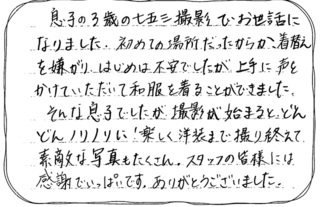 息子の3歳の七五三撮影でお世話に
なりました。初めての場所だったからか、着替え
を嫌がり、はじめは不安でしたが、上手に声を
かけていただいて和服を着ることができました。
そんな息子でしたが撮影が始まると、どん
どんノリノリに!楽しく洋装まで撮り終えて
素敵な写真もたくさん。スタッフの皆様には
感謝でいっぱいです。ありがとうございました。